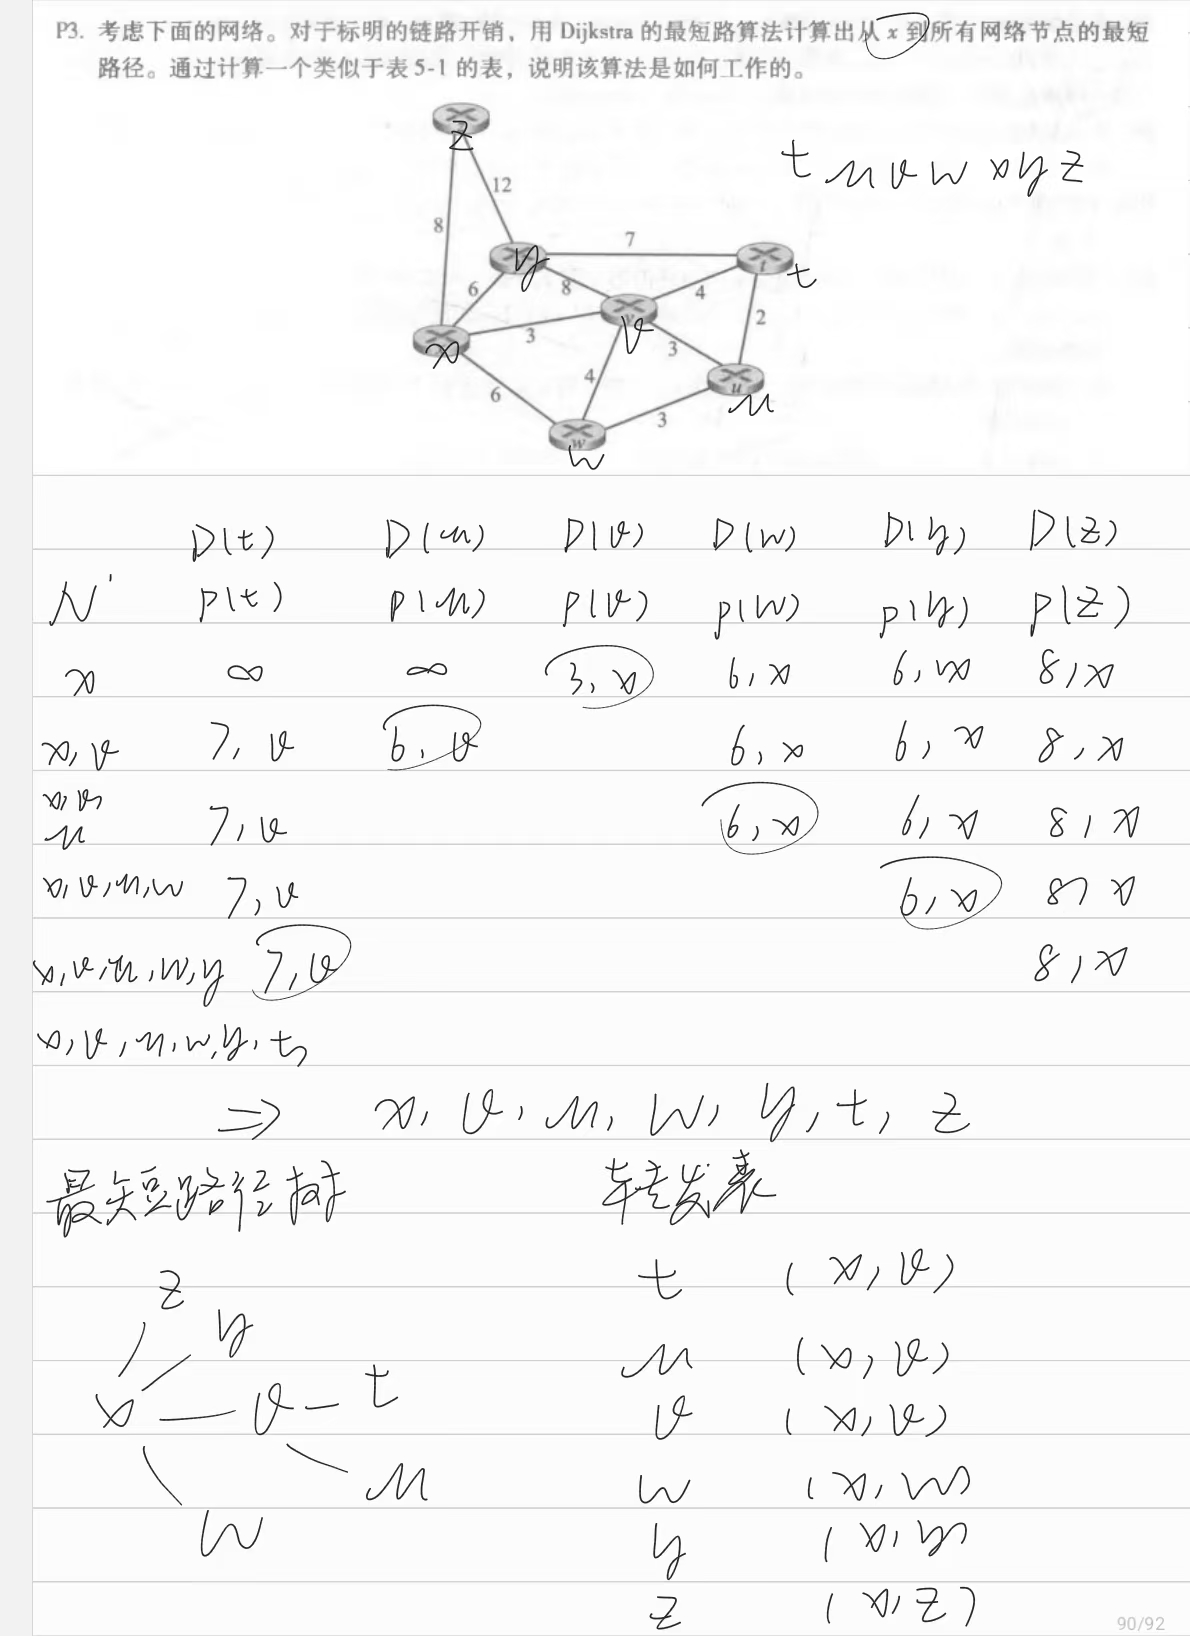 P3. 考虑下面的网络。对于标明的链路开销，用 Dijkstra 的最短路算法计算出从 x 到所有网络节点的最短
路径。通过计算一个类似于表 5-1 的表，说明该算法是如何工作的。
z
t u v w x y z
12
8
y
7
t
t
6
8
4
v
2
x
3
3
u
u
6
4
3
w
w
D(t) D(u) D(v) D(w) D(y) D(z)
N' p(t) p(u) p(v) p(w) p(y) p(z)
x ∞ ∞ 3,x 6,x 6,x 8,x
x,v 7,v 6,v 6,x 6,x 8,x
x,v,
u 7,v 6,x 6,x 8,x
x,v,u,w 7,v 6,x 8,x
x,v,u,w,y 7,v 8,x
x,v,u,w,y,t
⇒ x, v, u, w, y, t, z
最短路径树 转发表
z
t (x,v)
y
u (x,v)
x v t
v (x,v)
u
w (x,w)
w
y (x,y)
z (x,z)
90/92